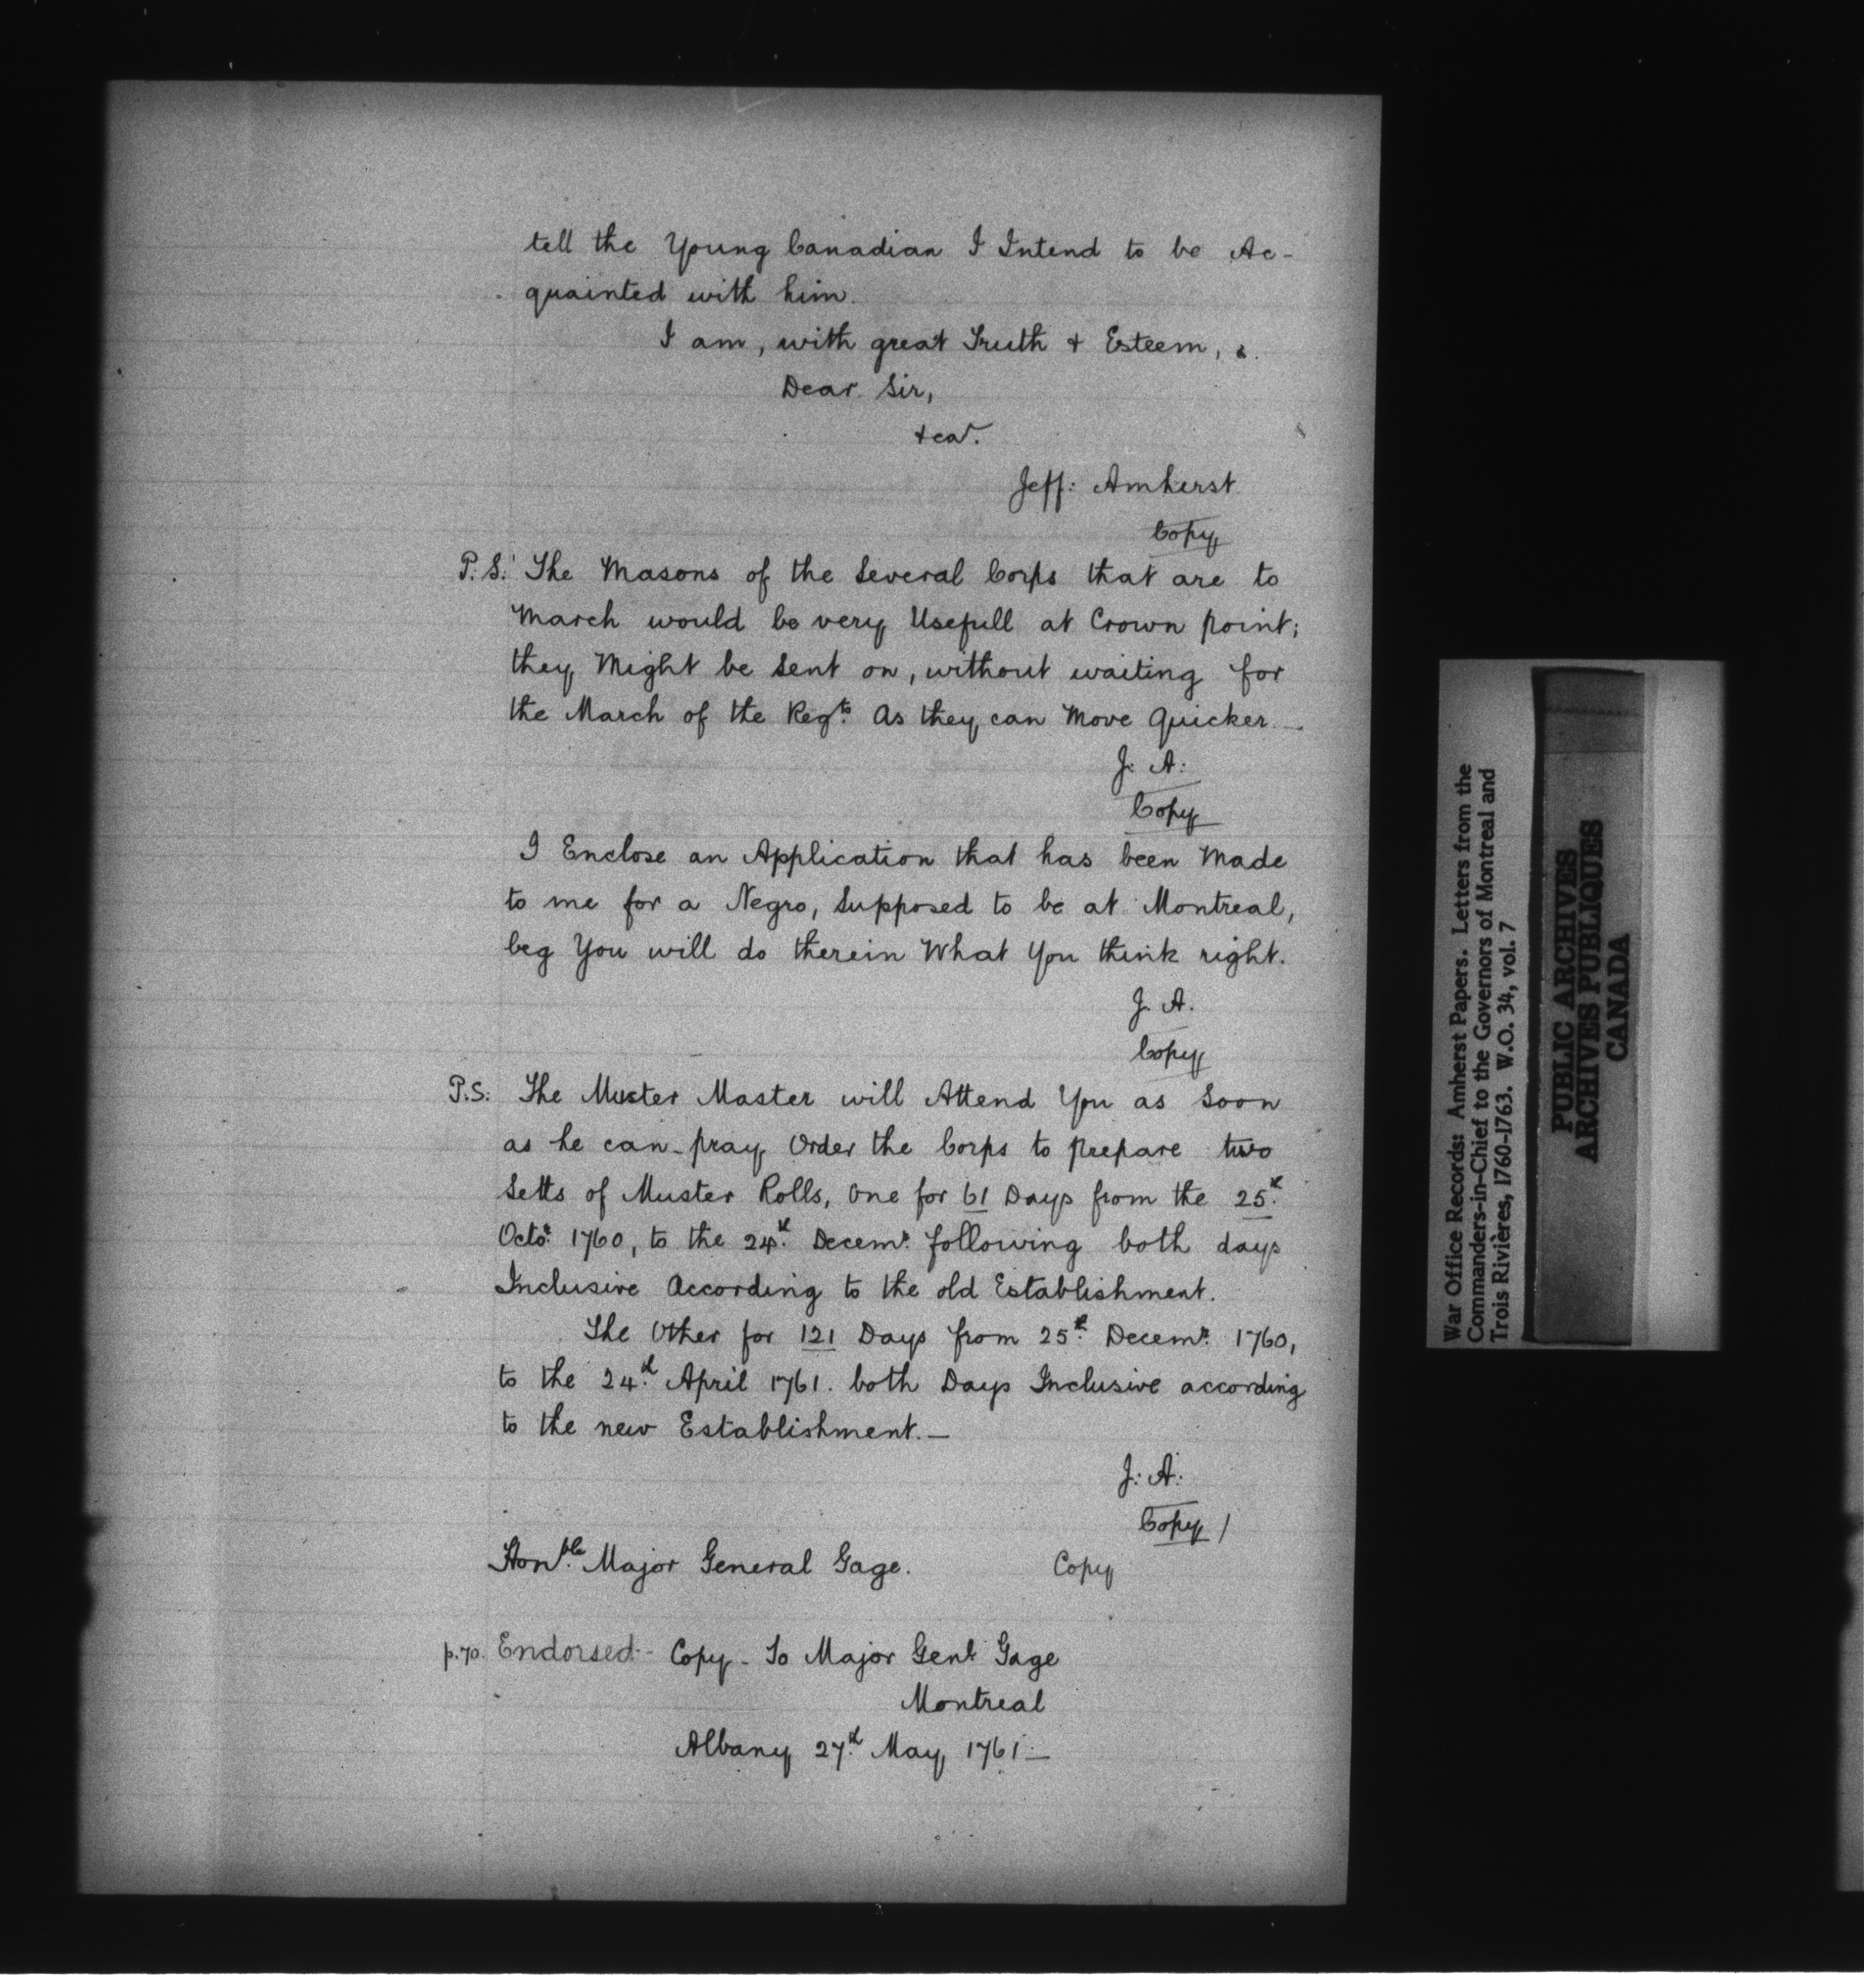 tell the Young Canadian I Intend to be Ac-
quainted with him.
I am, with great Truth & Esteem, &.
Dear Sir,
&ca.
Jeff: Amherst
Copy
P.S. The Masons of the Several Corps that are to
March would be very Usefull at Crown point;
they Might be Sent on, without waiting for
the March of the Regts. As they can Move Quicker. —
J: A:
Copy
I Enclose an Application that has been Made
to me for a Negro, Supposed to be at Montreal,
beg You will do therein What You think right.
J. A.
Copy
P.S: The Muster Master will Attend You as Soon
as he can - pray Order the Corps to prepare two
Setts of Muster Rolls, One for 61 Days from the 25th.
Octor. 1760, to the 24th. Decemr. following both days
Inclusive According to the old Establishment.
The Other for 121 Days from 25th. Decemr. 1760,
to the 24th. April 1761. both Days Inclusive according
to the new Establishment. —
J: A:
Copy /
Honble. Major General Gage. Copy
p.70. Endorsed - Copy - To Major Genl. Gage
Montreal
Albany 27th. May 1761 —
War Office Records: Amherst Papers. Letters from the
Commanders-in-Chief to the Governors of Montreal and
Trois Rivières, 1760-1763. W.O. 34, vol. 7
PUBLIC ARCHIVES
ARCHIVES PUBLIQUES
CANADA